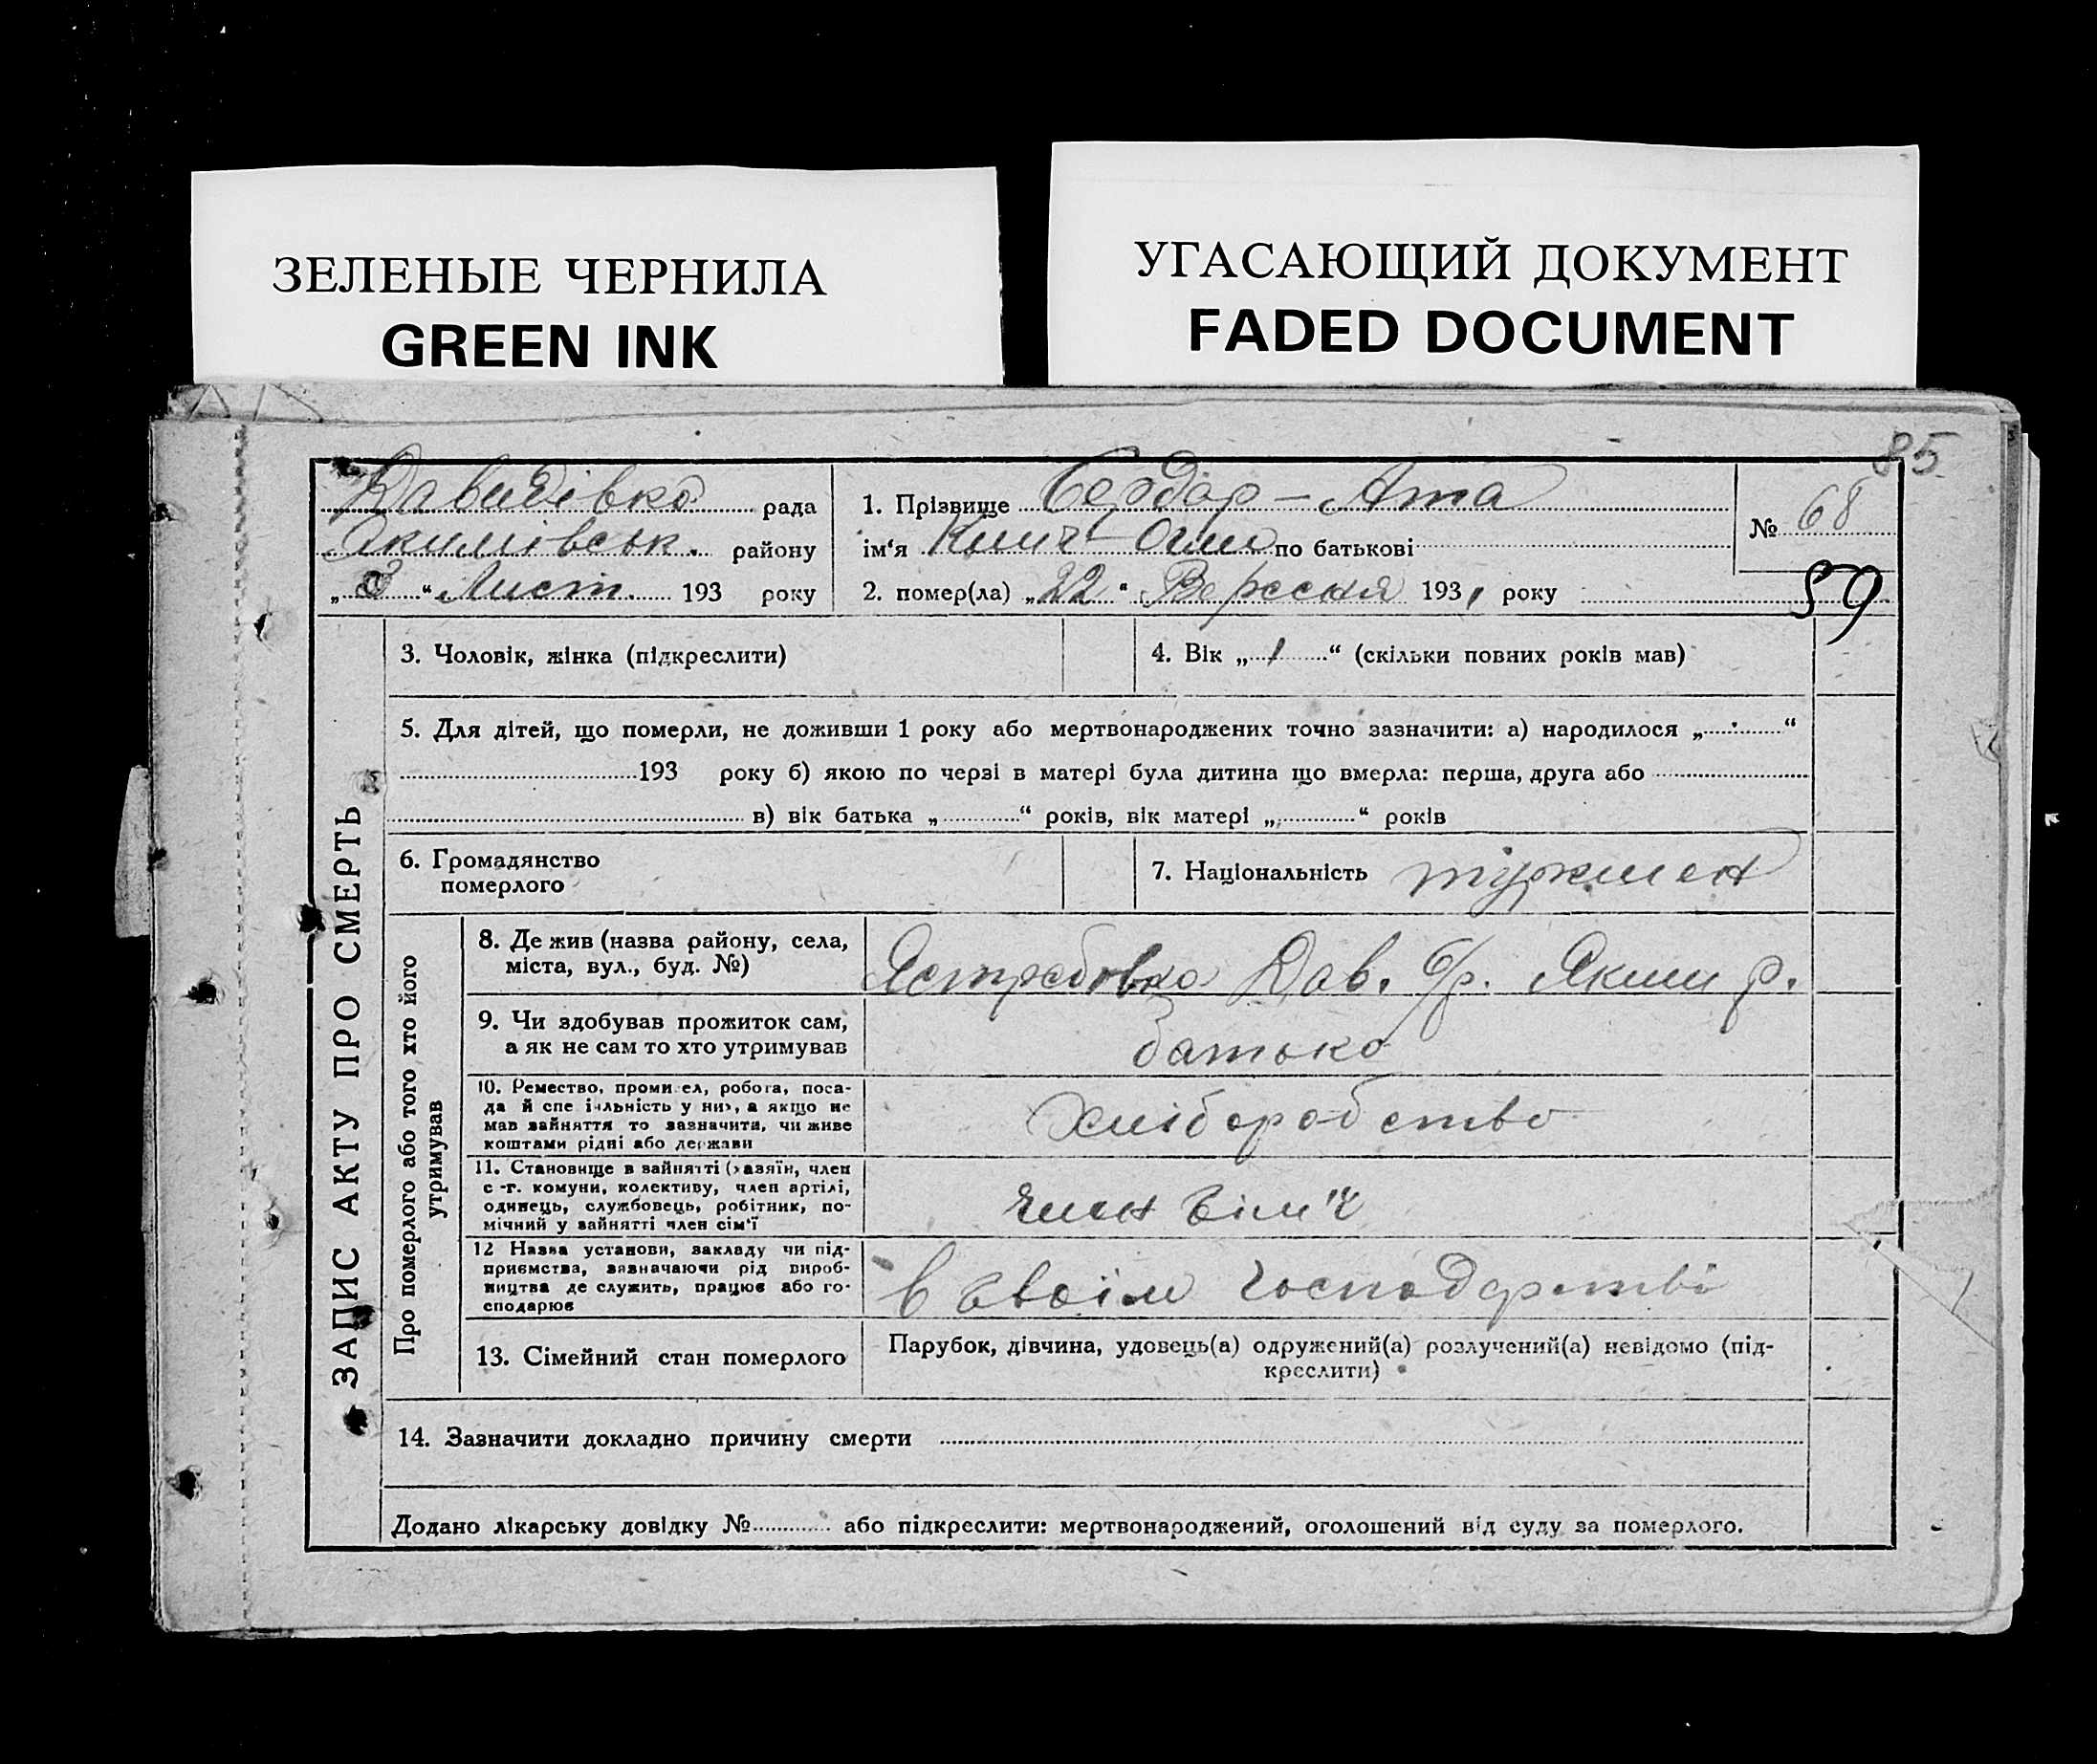 ЗЕЛЕНЫЕ ЧЕРНИЛА
GREEN INK
УГАСАЮЩИЙ ДОКУМЕНТ
FADED DOCUMENT
85
Давидівка рада
Якимівськ. району
„ 3 “ Лист. 193 року
1. Прізвище Сердар – Ата
ім‘я по батькові
2. помер(ла) „ 22 “ Вересня 1931 року
№ 68
59
ЗАПИС АКТУ ПРО СМЕРТЬ
3. Чоловік, жінка (підкреслити)
4. Вік „ 1 “ (скільки повних років мав)
5. Для дітей, що померли, не доживши 1 року або мертвонароджених точно зазначити: а) народилося „ “
193 року б) якою по черзі в матері була дитина що вмерла: перша, друга або
в) вік батька „ “ років, вік матері „ “ років
6. Громадянство
померлого
7. Національність туркмен
Про померлого або того хто його
утримував
8. Де жив (назва району, села,
міста, вул., буд. №)
Ястребовка Дав. с/р. Яким р.
9. Чи здобував прожиток сам,
а як не сам то хто утримував
батько
10. Ремество, промисел, робота, поса-
да й спеціяльність у них, а якщо не
мав зайняття то зазначити, чи живе
коштами рідні або держави
Хліборобство
11. Становище в зайнятті (хазяїн, член
с.-г. комуни, колективу, член артілі,
одинець, службовець, робітник, по-
мічний у зайнятті член сім'ї
член сім'ї
12 Назва установи, закладу чи під-
приємства, зазначаючи рід вироб-
ництва де служить, працює або го-
сподарює
в своїм господарстві
13. Сімейний стан померлого
Парубок, дівчина, удовець(а) одружений(а) розлучений(а) невідомо (під-
креслити)
14. Зазначити докладно причину смерти
Додано лікарську довідку № або підкреслити: мертвонароджений, оголошений від суду за померлого.